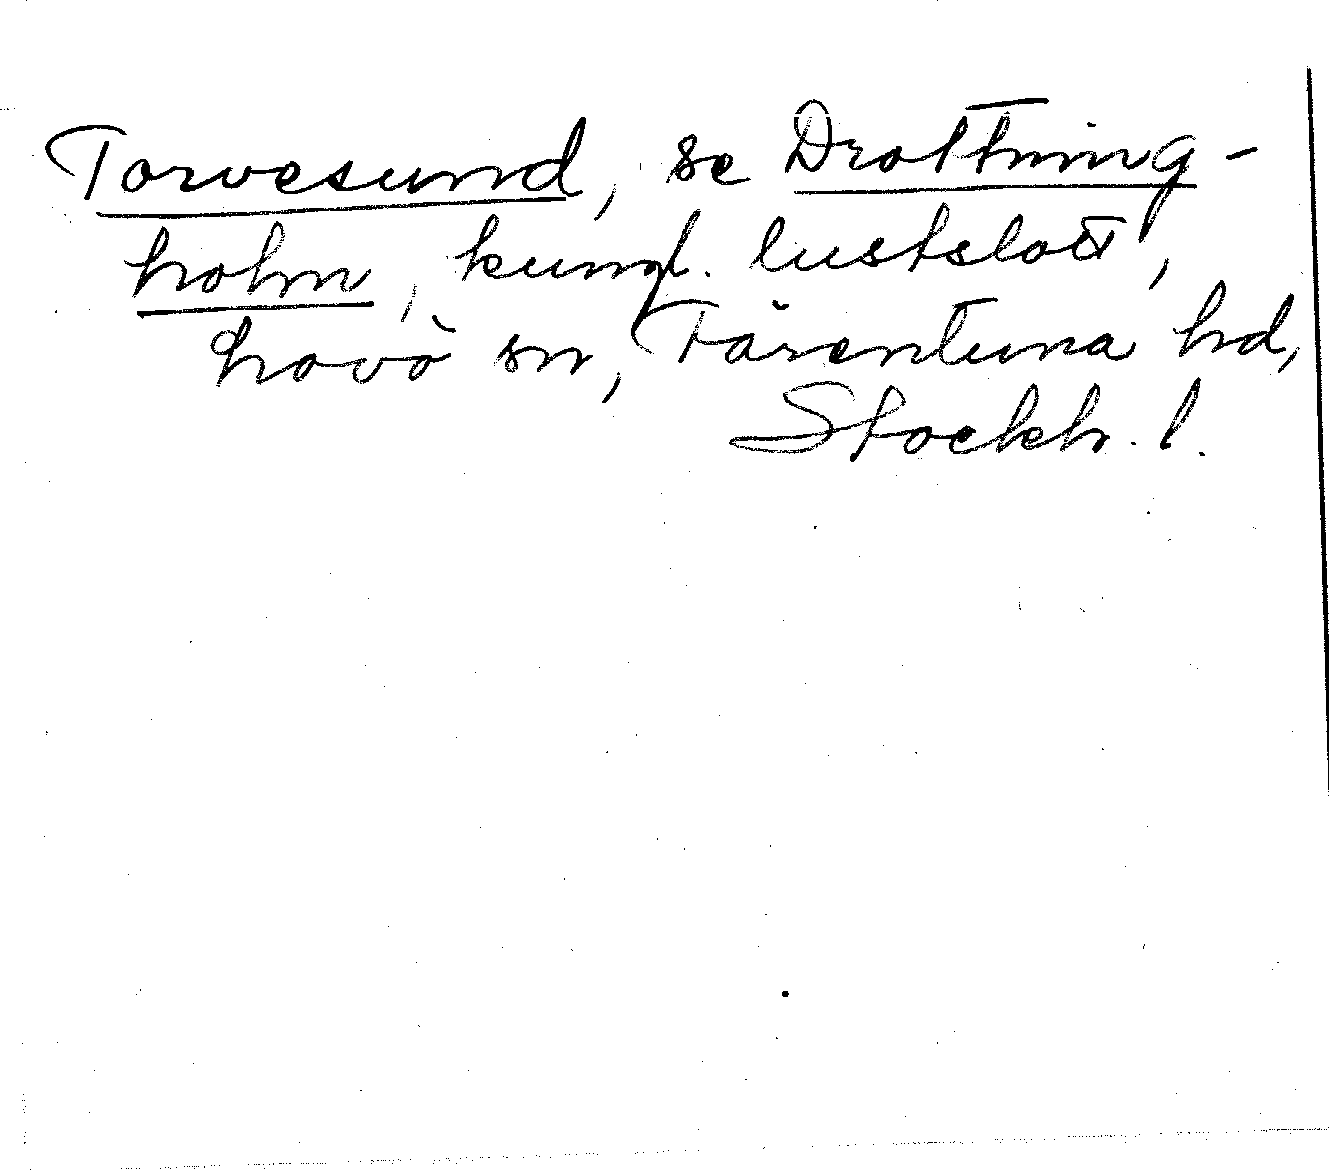 Torvesund, se Drottning-
holm, kungl. lustslott,
Lovö sn, Färentuna hd,
Stockh. l.